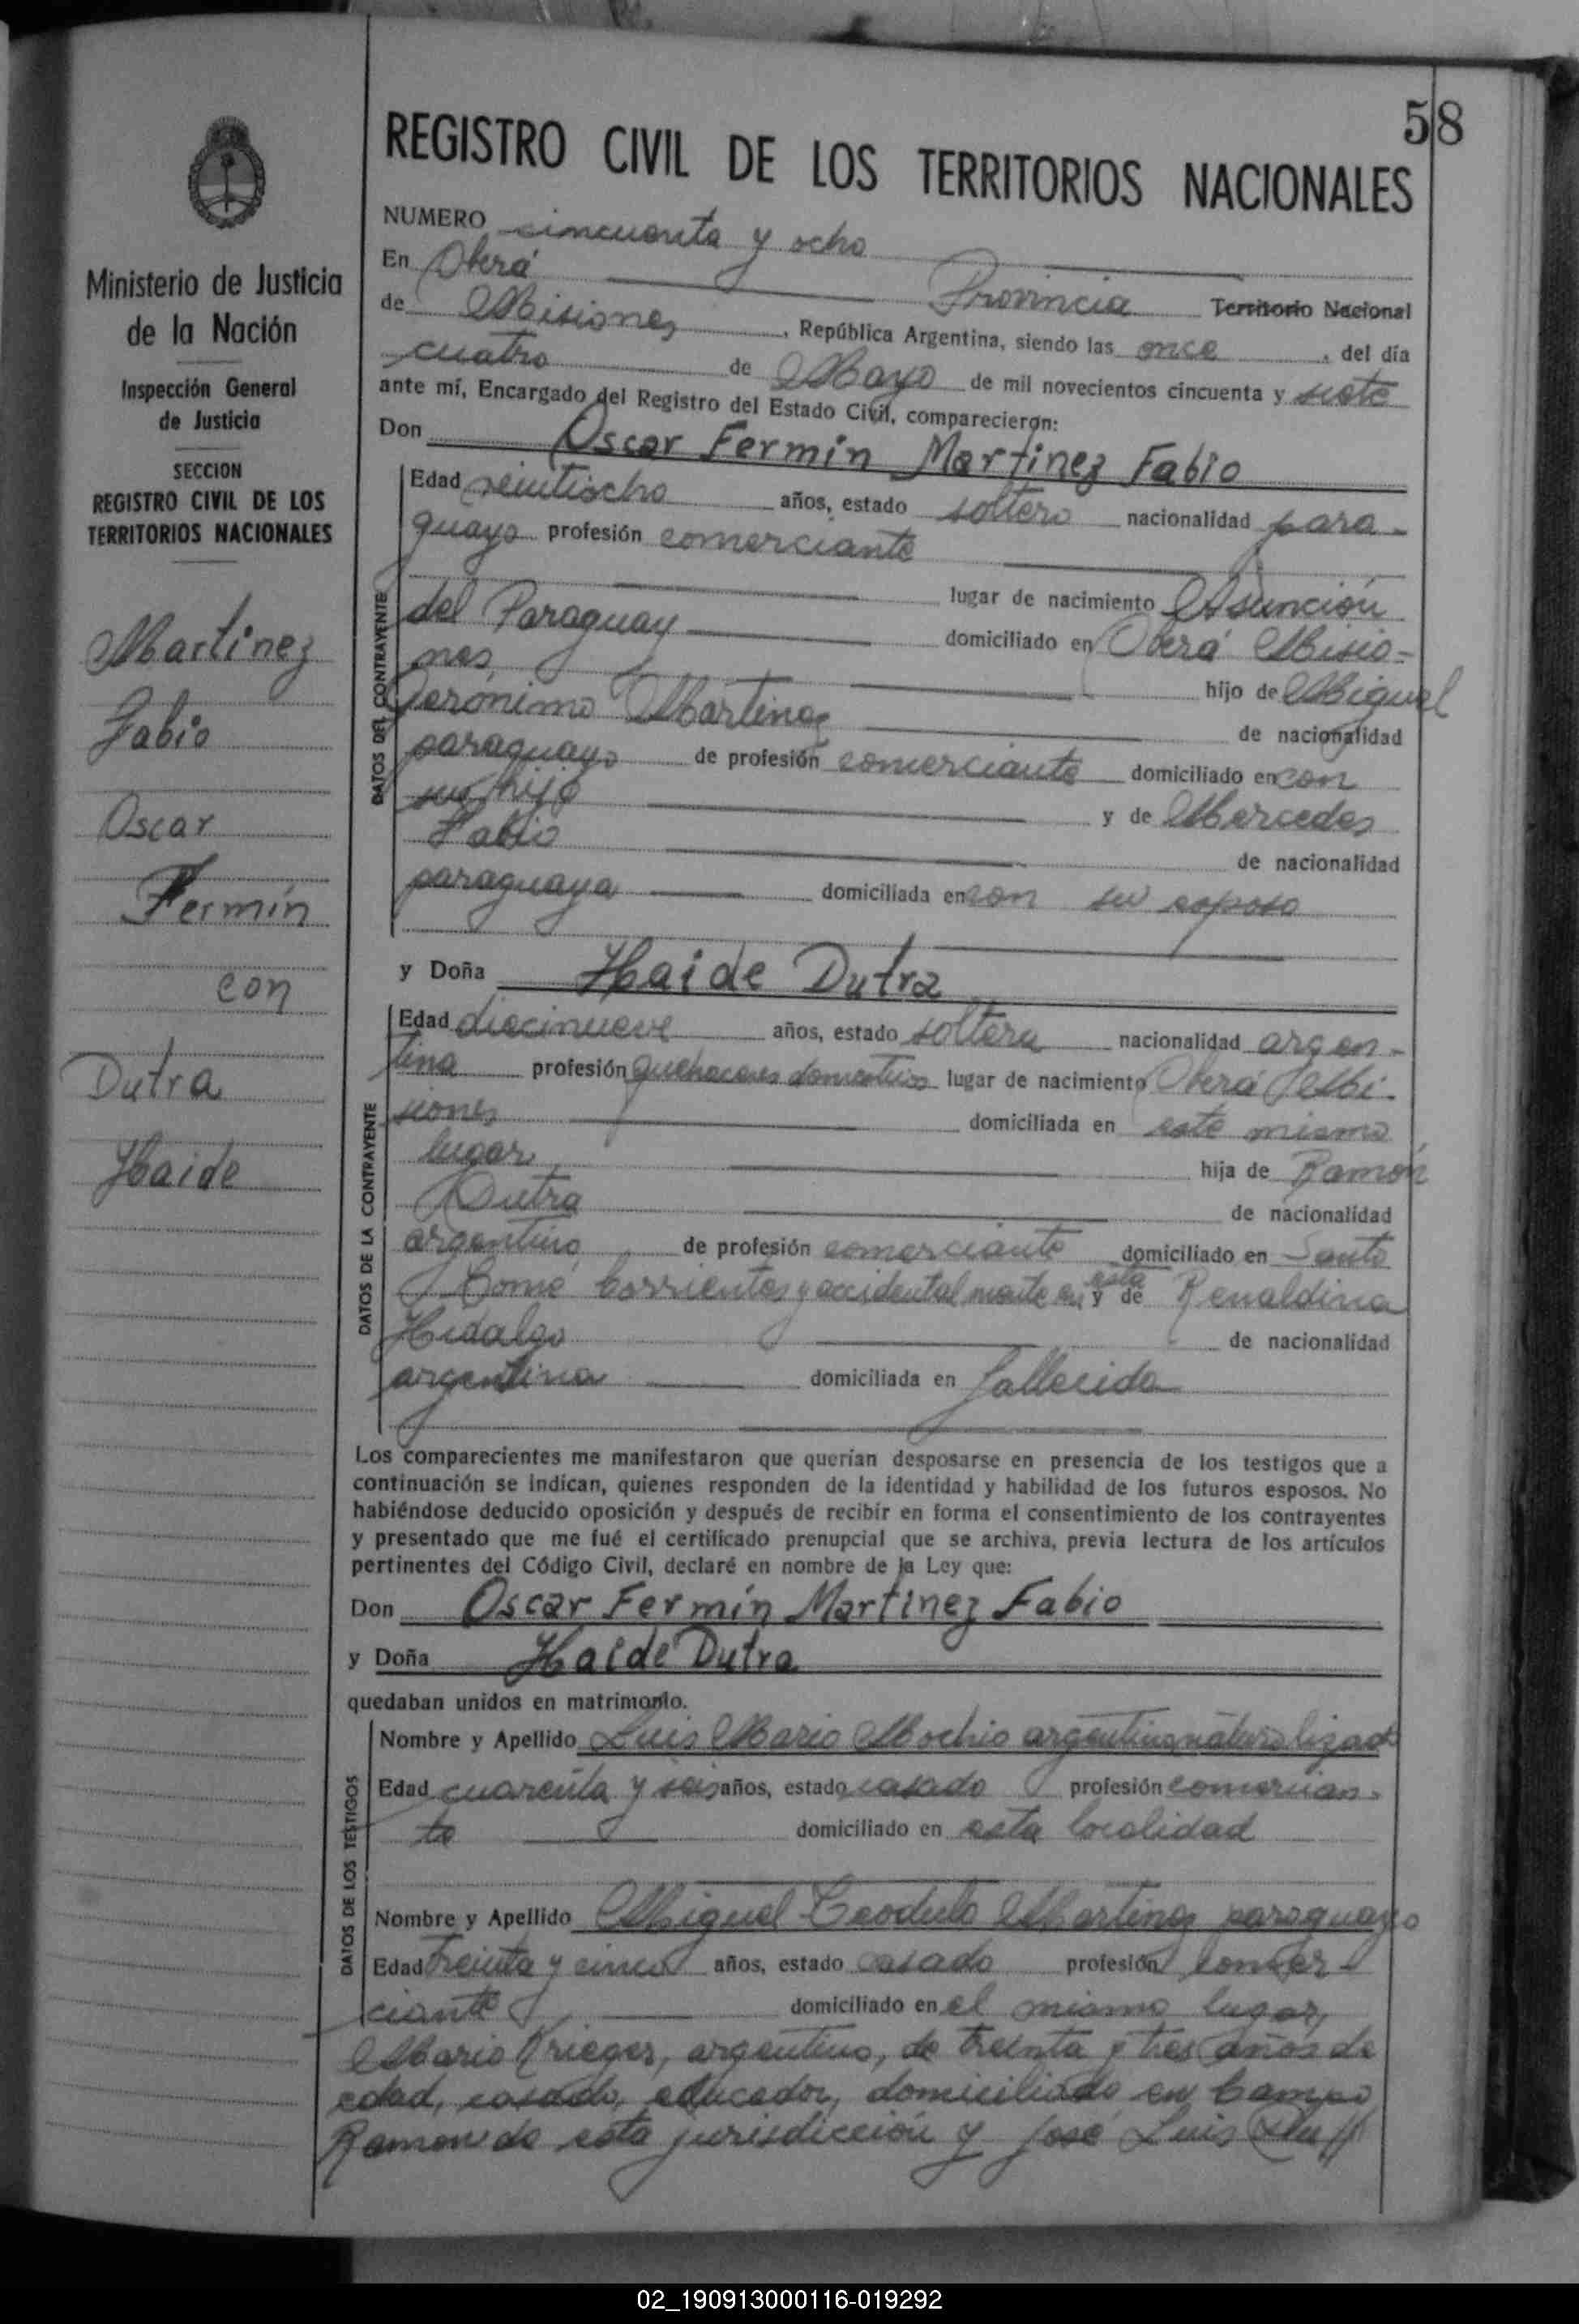 58
REGISTRO CIVIL DE LOS TERRITORIOS NACIONALES
Ministerio de Justicia
de la Nación
Inspección General
de Justicia
SECCION
REGISTRO CIVIL DE LOS
TERRITORIOS NACIONALES
Martinez
Fabio
Oscar
Fermín
con
Dutra
Haide
NUMERO cincuenta y ocho
En Oberá Provincia Territorio Nacional
de Misiones, República Argentina, siendo las once, del día
cuatro de Mayo de mil novecientos cincuenta y siete
ante mí, Encargado del Registro del Estado Civil, comparecieron:
Don Oscar Fermín Martinez Fabio
DATOS DEL CONTRAYENTE
Edad veintiocho años, estado soltero nacionalidad para-
guayo profesión comerciante
lugar de nacimiento Asunción
del Paraguay domiciliado en Oberá Misio-
nes hijo de Miguel
Gerónimo Martinez de nacionalidad
paraguayo de profesión comerciante domiciliado en con
su hijo y de Mercedes
Fabio de nacionalidad
paraguaya domiciliada en con su esposo
y Doña Haide Dutra
DATOS DE LA CONTRAYENTE
Edad diecinueve años, estado soltera nacionalidad argen-
tina profesión quehaceres domesticos lugar de nacimiento Oberá Mi-
siones domiciliada en este mismo
lugar, hija de Ramón
Dutra de nacionalidad
argentino, de profesión comerciante domiciliado en Santo
Tomé Corrientes y accidentalmente en esta y de Renaldina
Hidalgo de nacionalidad
argentina domiciliada en fallecida
Los comparecientes me manifestaron que querían desposarse en presencia de los testigos que a
continuación se indican, quienes responden de la identidad y habilidad de los futuros esposos. No
habiéndose deducido oposición y después de recibir en forma el consentimiento de los contrayentes
y presentado que me fué el certificado prenupcial que se archiva, previa lectura de los artículos
pertinentes del Código Civil, declaré en nombre de la Ley que:
Don Oscar Fermín Martinez Fabio
y Doña Haide Dutra
quedaban unidos en matrimonio.
DATOS DE LOS TESTIGOS
Nombre y Apellido Luis Mario Mochio argentino naturalizado
Edad cuarenta y seis años, estado casado profesión comercian-
te domiciliado en esta localidad
Nombre y Apellido Miguel Teodulo Martinez paraguayo
Edad treinta y cinco años, estado casado profesión comer-
ciante domiciliado en el mismo lugar,
Mario Krieger, argentino, de treinta y tres años de
edad, casado, educador, domiciliado en Campo
Ramon de esta jurisdicción y José Luis
02_190913000116-019292